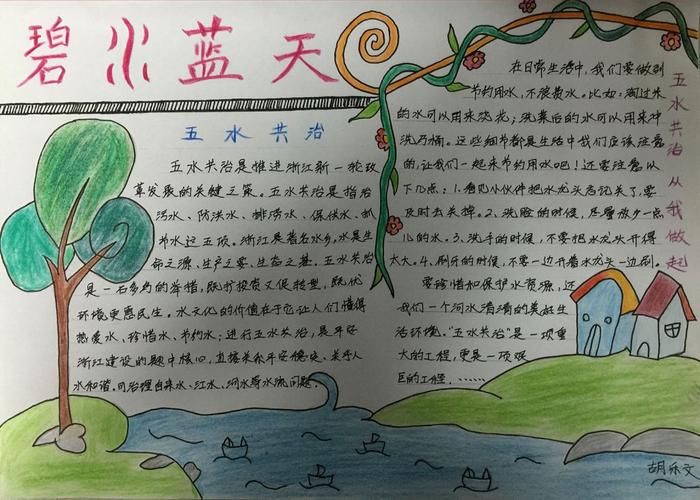 碧水蓝天
五水共治
五水共治是推进浙江新一轮改
革发展的关键之策。五水共治是指治
污水、防洪水、排涝水、保供水、抓
节水这五项。浙江是著名水乡,水是生
命之源、生产之要、生态之基。五水共治
是一石多鸟的举措,既扩投资又促转型,既优
环境更惠民生。水文化的价值在于它让人们懂得
热爱水、珍惜水、节约水;进行五水共治,是平安
浙江建设的题中核心,直接关系平安稳定、关乎人
水和谐。可治理自来水、江水、河水等水流问题。
在日常生活中,我们要做到
节约用水,不浪费水。比如:淘过米
的水可以用来浇花;洗菜后的水可以用来冲
洗马桶。这些细节都是生活中我们应该注意
的,让我们一起来节约用水吧!还要注意以
下几点:1.看见小伙伴把水龙头忘记关了,要
及时去关掉。2、洗脸的时候,尽量放少一点
儿的水。3、洗手的时候,不要把水龙头开得
太大。4、刷牙的时候,不要一边开着水龙头一边刷。
要珍惜和保护水资源,还
我们一个河水清清的美好生
活环境。"五水共治"是一项重
大的工程,更是一项艰
巨的工程,……
五水共治从我做起
胡乐文